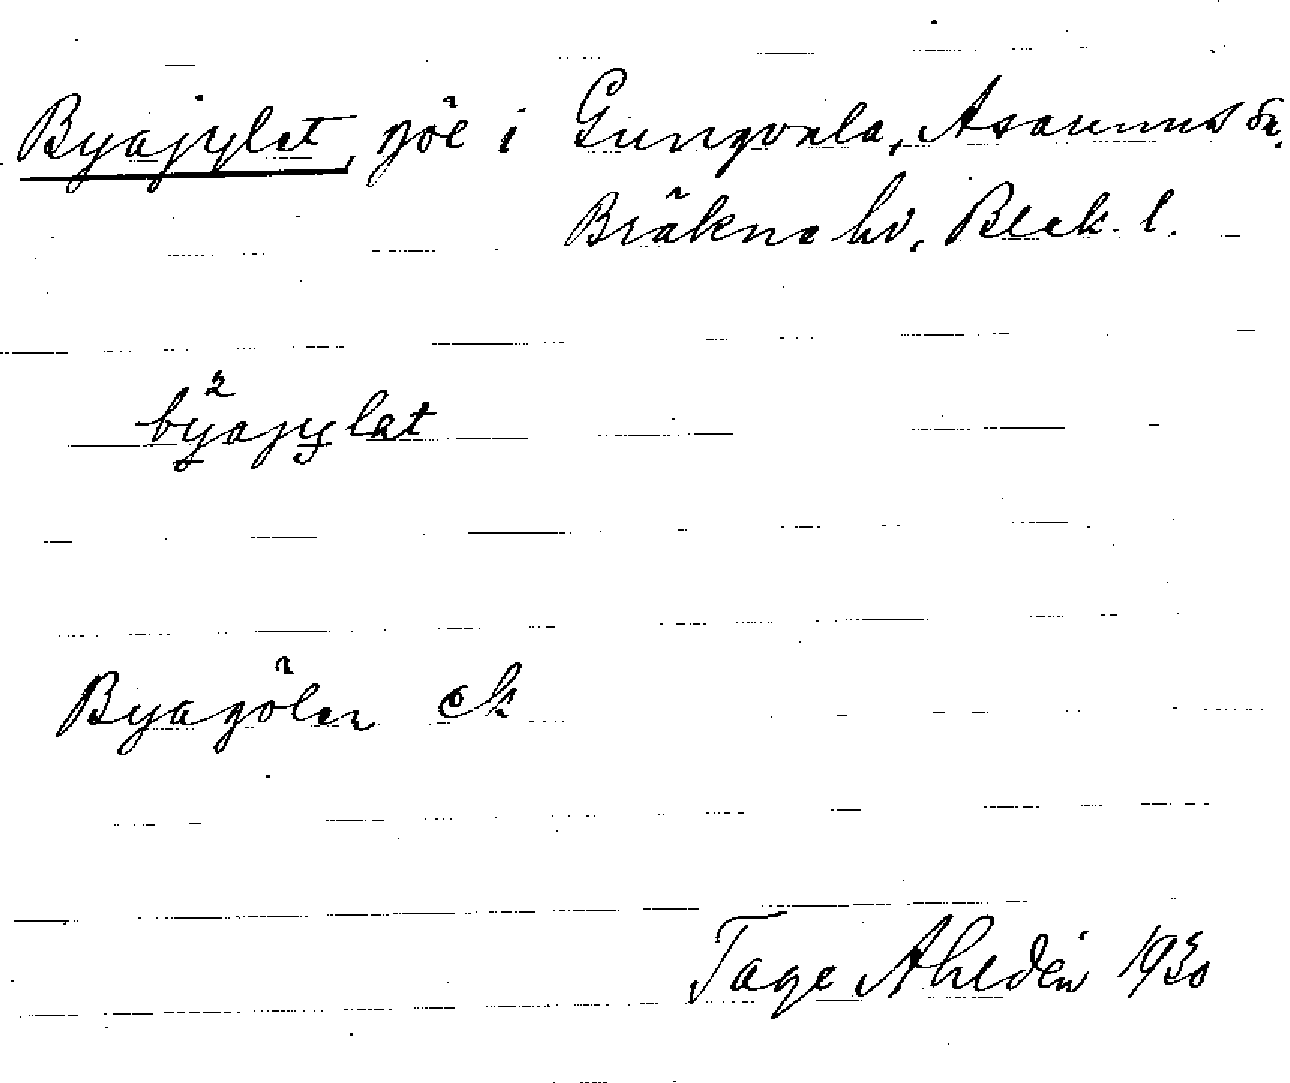 Byajylet, göl i Gungvala, Asarums sn.
Bräkne hd, Blek. l.
2
byajylet
Byagölen ek
Tage Ahldén 1930